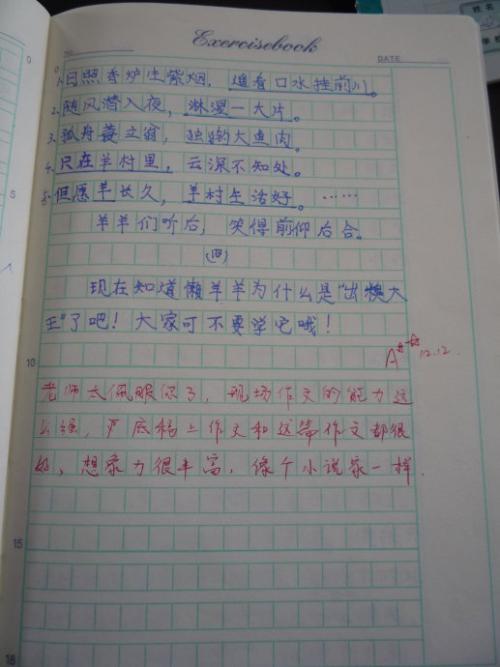 Exercisebook
NO
DATE
1.日照香炉生紫烟，遥看口水挂前川。
2.随风潜入夜，淋湿一大片。
3.孤舟蓑立翁，独钓大鱼肉。
4.只在羊村里，云深不知处。
5.但愿羊长久，羊村生活好。……
羊羊们听后，笑得前仰后合。
(四)
现在知道懒羊羊为什么是"出糗大
王"了吧！大家可不要学它哦！
A 12.12.
10
老师太佩服你了，现场作文的能力这
么强，底稿上作文和这篇作文都很
好，想象力很丰富，像个小说家一样
15